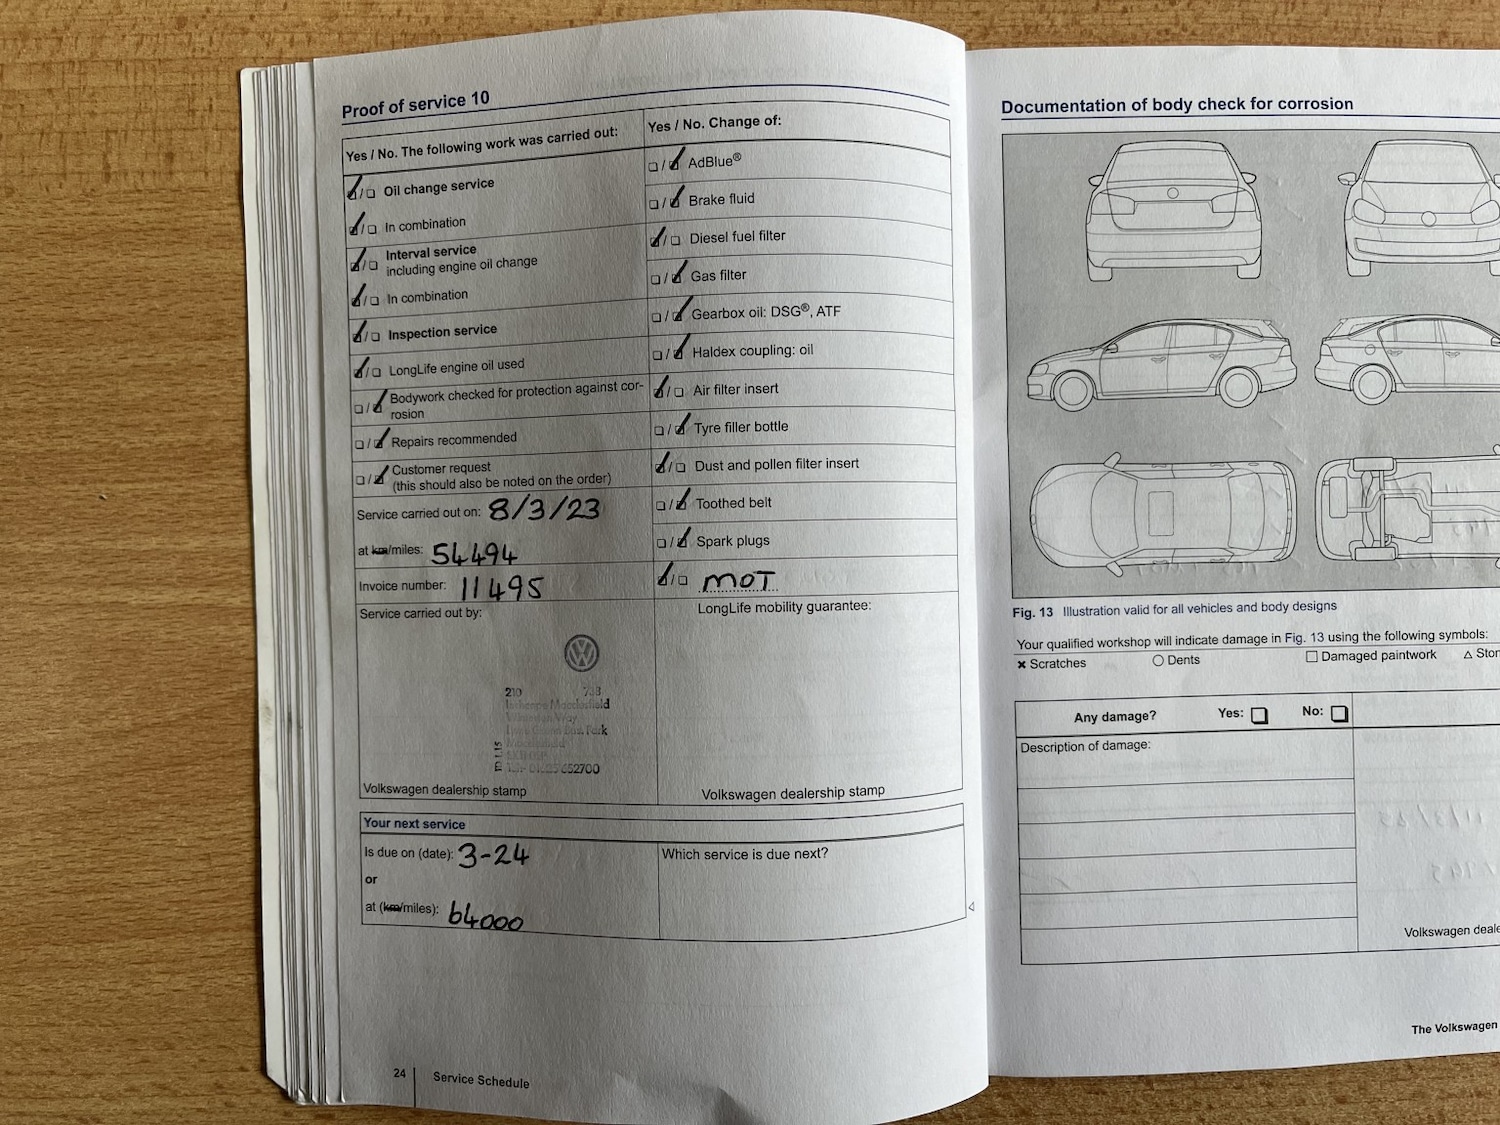 Proof of service 10
Yes / No. The following work was carried out:
Oil change service
In combination
Interval service
including engine oil change
In combination
Inspection service
LongLife engine oil used
Bodywork checked for protection against cor-
rosion
Repairs recommended
Customer request
(this should also be noted on the order)
Service carried out on: 8/3/23
at km/miles: 54494
Invoice number: 11495
Service carried out by:
210
Macclesfield
Way
Park
652700
Volkswagen dealership stamp
Yes / No. Change of:
AdBlue®
Brake fluid
Diesel fuel filter
Gas filter
Gearbox oil: DSG®, ATF
Haldex coupling: oil
Air filter insert
Tyre filler bottle
Dust and pollen filter insert
Toothed belt
Spark plugs
MOT
LongLife mobility guarantee:
Volkswagen dealership stamp
Your next service
Is due on (date): 3-24
or
at (km/miles): 64000
Which service is due next?
24 Service Schedule
Documentation of body check for corrosion
Fig. 13 Illustration valid for all vehicles and body designs
Your qualified workshop will indicate damage in Fig. 13 using the following symbols:
Scratches Dents Damaged paintwork
Any damage? Yes: No:
Description of damage:
Volkswagen
The Volkswagen